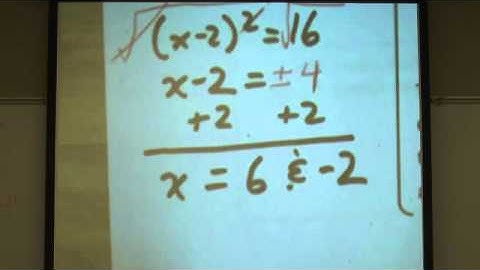 √(x-2)² = √16
x-2 = ±4
+2 +2
x = 6 & -2